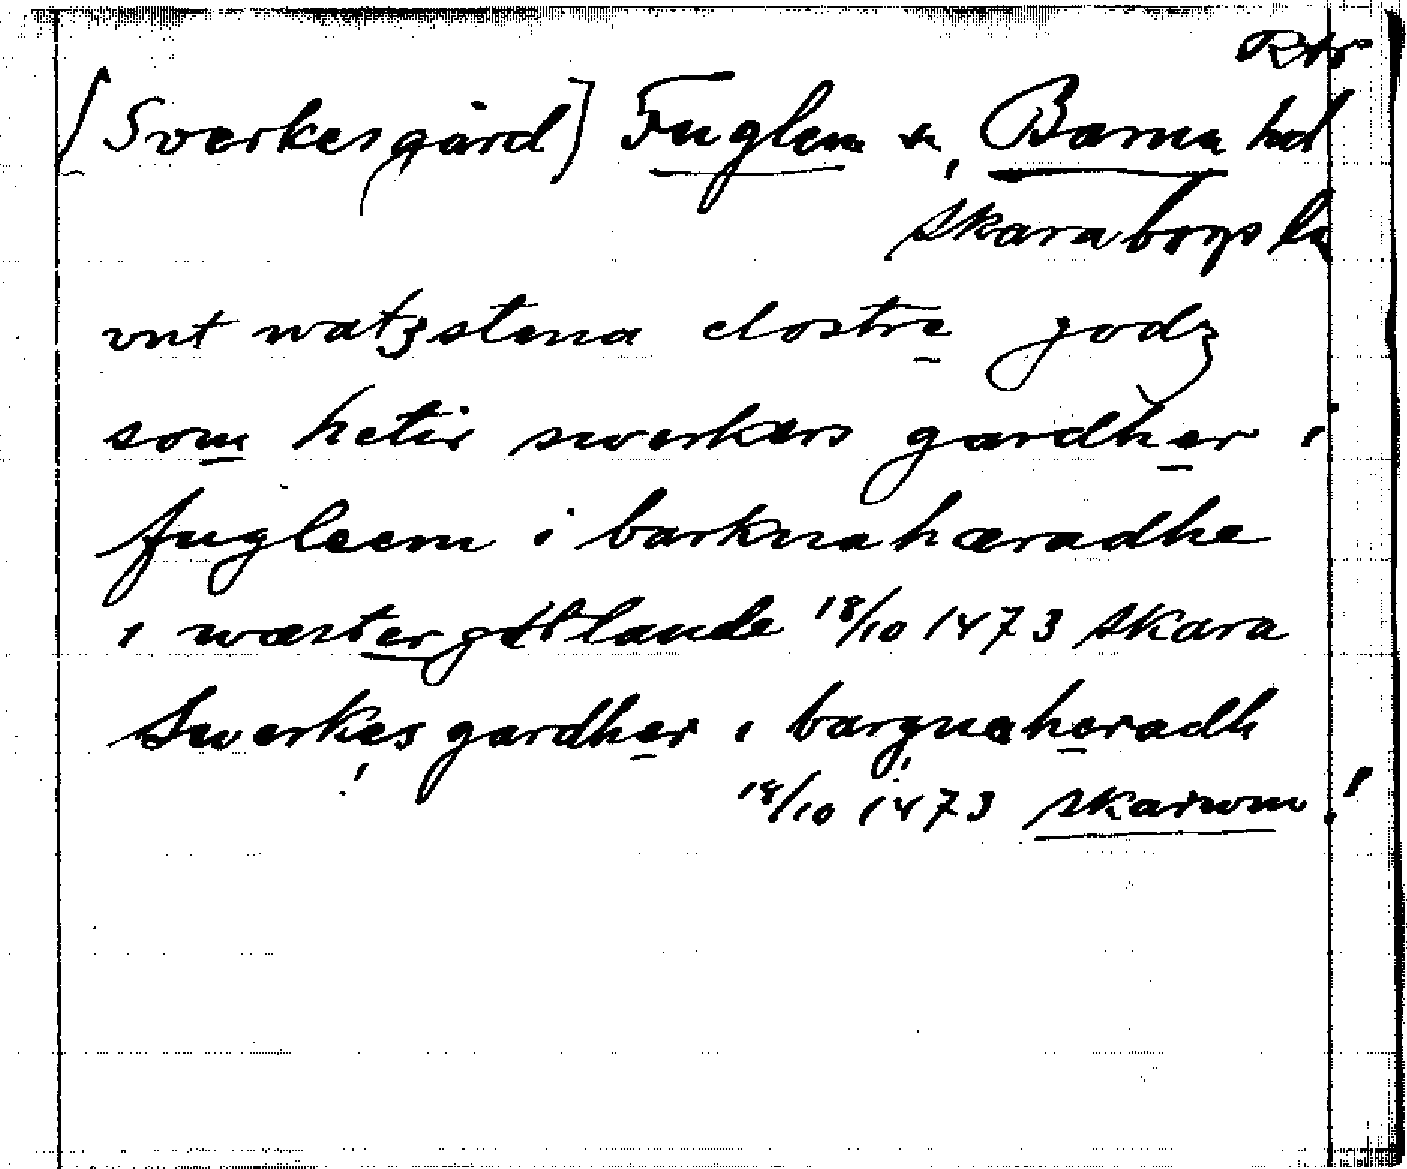 Rtr
[Sverkesgård] Fuglem sn, Barna hd
Skaraborgs län
vnt watzstena clostre godz
som hetir swerkers gardher i
fugleem i barknahæradhe
i wæstergötlande 18/10 1473 Skara
Swerkes gardher i bargnaheradh
18/10 1473 Skarwm!